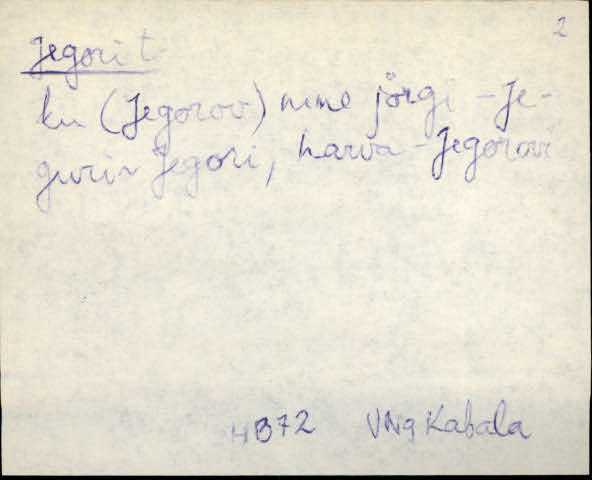 2
Jegori t.
ku (Jegorov) nime jörgi - Je-
guri ~ Jegori, harva - Jegorovi
HB72 VNg Kabala